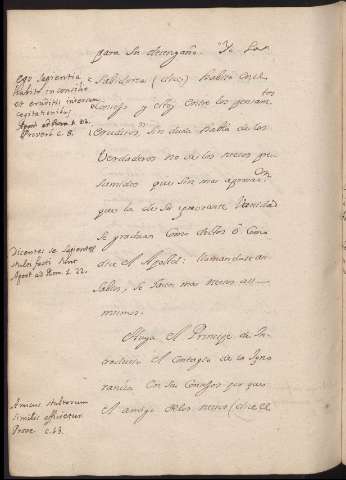 para su desengaño. Yo la
Sabiduria (dice) habito en el
consejo y estoy entre los pensamtos
eruditos, sin duda habla de los
verdaderos no de los necios pre
sumidos que sin mas aprovacon
que la de su ignorante vanidad
se graduan como doctos ò como
dice el Apostol: llamandose a si
sabios, se hacen mas necios assi
mismos.
Huya el Principe de In
troducir el contagio de la Igno
rancia en su Consejo por que
el amigo de los necios (dice el
Ego Sapientia
habito in consilio
et eruditis intersum
cogitationibus
Proverb c. 8.
Dicentes se Sapientes
stulti facti sunt
Apost ad Rom. 1. 22.
Amicus stultorum
similis efficietur
Prov. c. 13.